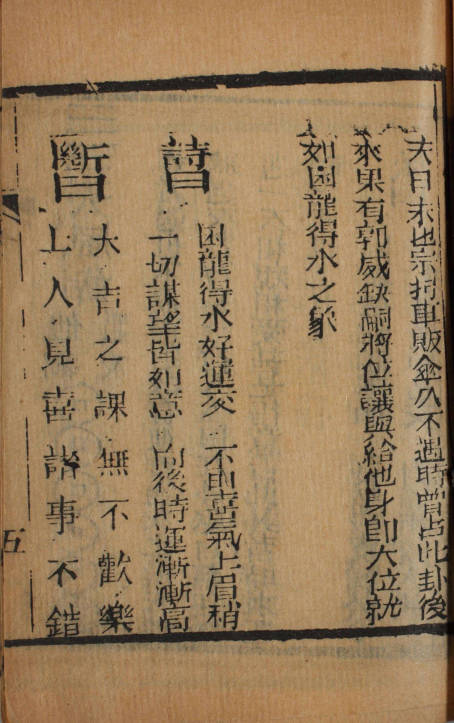 日宗車販傘不遇時曾占此卦後
來果有郭威缺嗣將位讓與給他身即大位就
如困龍得水之象
詩曰
困龍得水好運交 不由喜氣上眉稍
一切謀望皆如意 向後時運漸漸高
斷曰
大吉之課無不歡樂
上人見喜諸事不錯
五